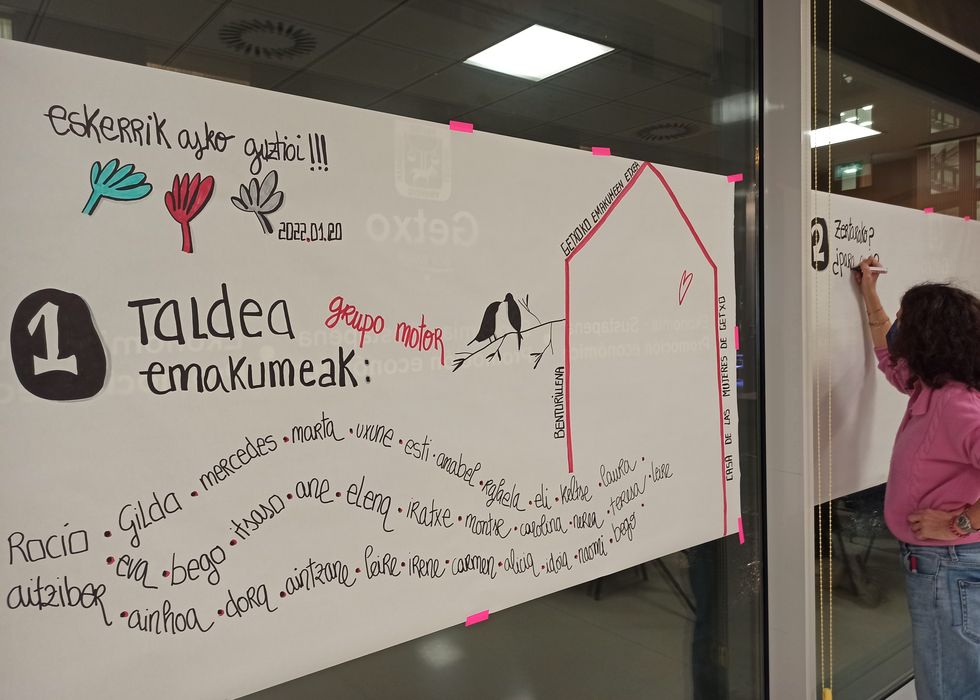 eskerrik asko guztioi!!!
2022.01.20
Getxo
1 Taldea
emakumeak:
grupo motor
GETXOKO EMAKUMEEN ETXEA
BENTURILLENA
CASA DE LAS MUJERES DE GETXO
Rocío · Gilda · mercedes · marta · uxune · esti · anabel · rafaela · eli · koltxe · laura ·
· eva · bego · itsaso · ane · elena · iratxe · montxe · carolina · nerea · teresa · leire
aitziber · ainhoa · dora · aintzane · leire · irene · carmen · alicia · idoia · naomi · bego ·
2 Zertarako?
¿para